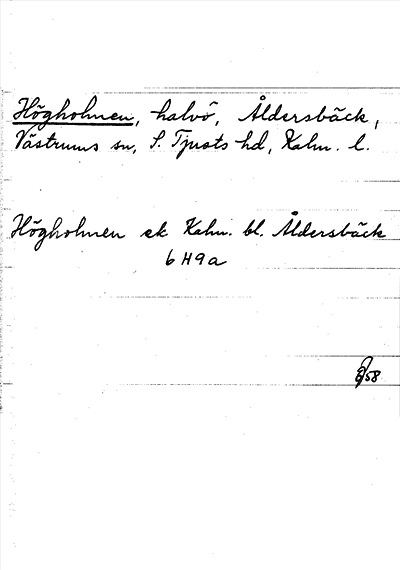 Högholmen, halvö, Åldersbäck,
Västrums sn, S. Tjusts hd, Kalm. l.
Högholmen ek Kalm. bl. Åldersbäck
6 H9a
58